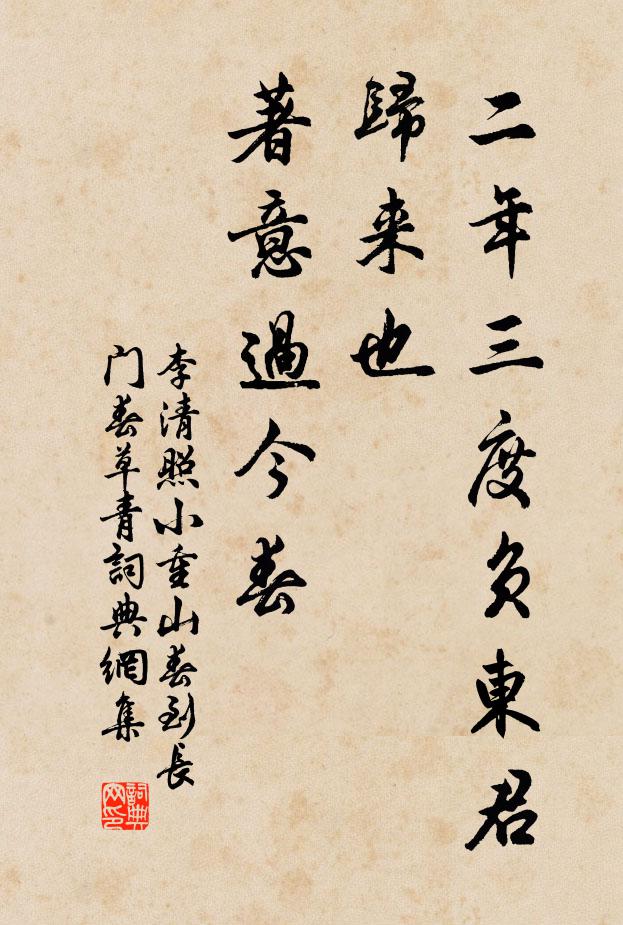 二年三度負東君
歸来也
著意過今春
李清照小重山春到長
门春草青詞典網集
詞典
网印